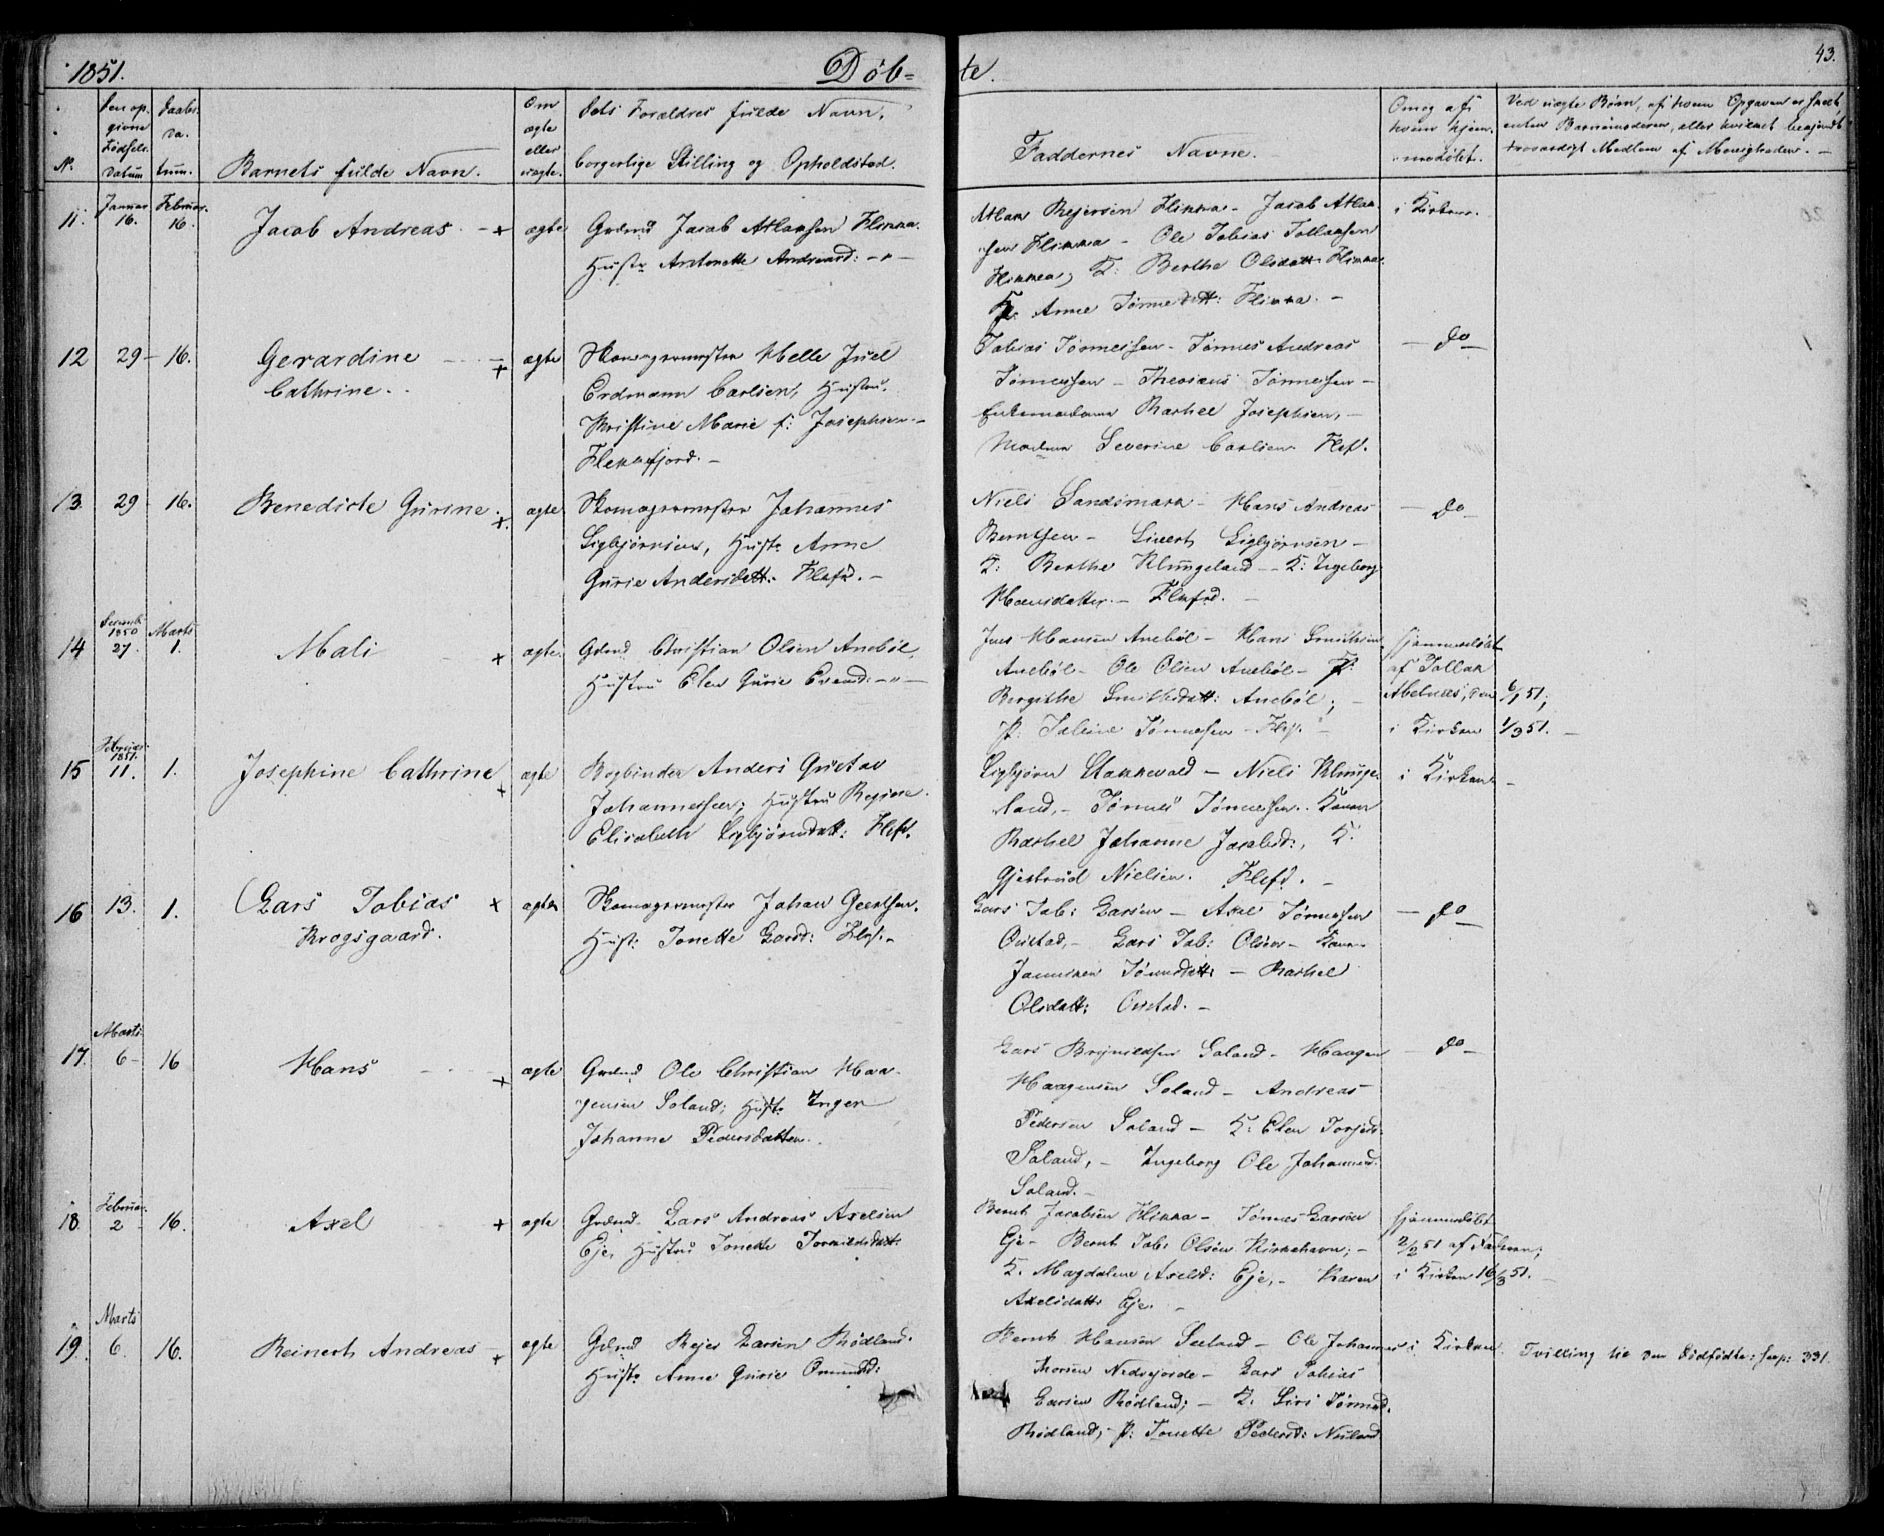 1851.
Døb=
te.
43.
No.
Den op-
givne
Fødsels
Datum
Daabs
Da-
tum.
Barnets fulde Navn.
Om
ægte
eller
uægte.
Dets Forældres fulde Navn,
borgerlige Stilling og Opholdsted.
Faddernes Navne.
Om og af
hvem hjem-
medøbt.
Ved uægte Børn, af hvem Opgaven er skeet,
enten Barnemoderen, eller hvilket bekjendt
troværdigt Medlem af Menigheden. —
11.
Januar
16.
Februar
16.
Jacob Andreas - +
ægte
Grdmd Jacob Atlaksen Flikka.
Hustr Antonette Andreasd: — " —
Atlak Rejersen Flikka - Jacob Atlak-
sen Flikka - Ole Tobias Tollaksen
Flikka, K: Berthe Olsdatt: Flikka.
K: Anne Tønnesdatt: Flikka. -
i Kirken.
12
29 -
16.
Gerardine - +
Cathrine.
ægte
Skomagermester Helle Juel
Erdmann Carlsen, Hustru.
Kristine Marie f: Josephsen. -
Flekkefjord. -
Tobias Tønnessen - Tønnes Andreas
Tønnessen - Tønnessen -
Enkemadame Rachel Josephsen, -
Madam Severine Carlsen Flef.
- do -
13.
29 -
16.
Benedicte Gurine. +.
ægte
Skomagermester Johannes
Sigbjørnsen, Hustr Anne
Gurie Andersdatt. Flefd. -
Niels Sandsmark - Hans Andreas
Berntsen - Sivert Sigbjørnsen -
K: Berthe Klungeland - K: Ingeborg
Hansdatter. - Flefd. -
- do -
14
Decemb.
1850
27.
Marts
1.
Mali +
ægte.
Grdmd Christian Olsen Anebøl,
Hustru Elen Gurie Evend: — " —
Jens Hansen Anebøl - Hans Smithsen
Anebøl - Ole Olsen Anebøl - P:
Bergithe Smithsdatt: Anebøl; -
P: Saline Tønnessen - Flef. -
hjemmedøbt
af Tollak
Abelnæs, den 6/1 51;
i Kirken 1/3 51. -
15
Februar
1851.
11.
1.
Josephine Cathrine +
ægte
Bogbinder Anders Gustav
Johannessen; Hustru Regine
Elisabeth Sigbjørnsdatt: Flefd.
Sigbjørn Stakkevold - Niels Klunge-
land, - Tønnes Tønnessen. Konen
Rachel Johanne Jacobsd:, K:
Gjertrud Nielsen. Flefd. -
i Kirken -
16
13.
1.
Lars Tobias +
Krogsgaard.
ægte
Skomagermester Johan Geertsen.
Hust: Tonette Larsd: Flef. -
Lars Tob: Larsen - Axel Tønnesen
- Lars Tob: Olsen - Konen
Janniken Tønnesdatt: - Rachel
Olsdatt: -
- do -
17.
Marts
6 -
16
Hans +
ægte
Grdmd Ole Christian Haa-
gensen Soland; Hustr Inger
Johanne Pedersdatter.
Lars Brynildsen Soland - Haagen
Haagensen Soland - Andreas
Pedersen Soland - K: Elen Torjusd:
Soland, - Ingeborg Ole Johannesd.
Soland. -
- do -
18.
Februar.
2 -
16.
Axel +
ægte
Grdmd Lars Andreas Axelsen
Eje, Hustru Tonette Tormodsdatt:
Bernt Jacobsen Flikka - Tønnes Larsen
Eje - Bernt Tob: Olsen Kirkehavn; -
K. Magdalene Axelsd: Eje, - Karen
Axelsdatt: Eje. -
hjemmedøbt
2/2 51 af Faderen;
i Kirken 16/3 51. -
19.
Marts
6.
16.
Reinert Andreas - +
ægte
Grdmd Rejer Larsen Rødland.
Hustr Anne Gurie Omundsd:
Bernt Hansen Seland - Ole Johannes
Thorsen Nedrejorde - Lars Tobias
Larsen Rødland; - K. Siri Tønnesd.
Rødland; - P: Tonette Pedersd: Nuland
i Kirken.
Tvilling til den Dødfødte: sep: 331.